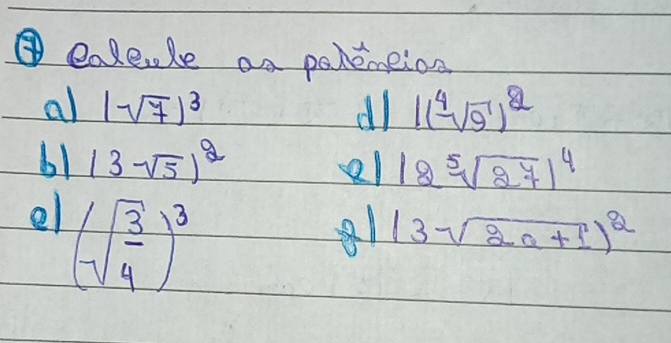 7 Calcule as potências
a) (√7)³ d) ((⁴√9)²
b) (3√5)² e) (2 ⁵√27)⁴
c) (√3/4)³ f) (3√2a+1)²